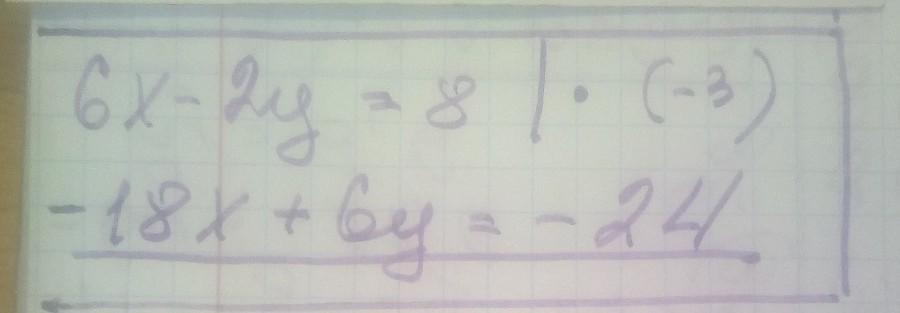 6x - 2y = 8 | · (-3)
-18x + 6y = -24